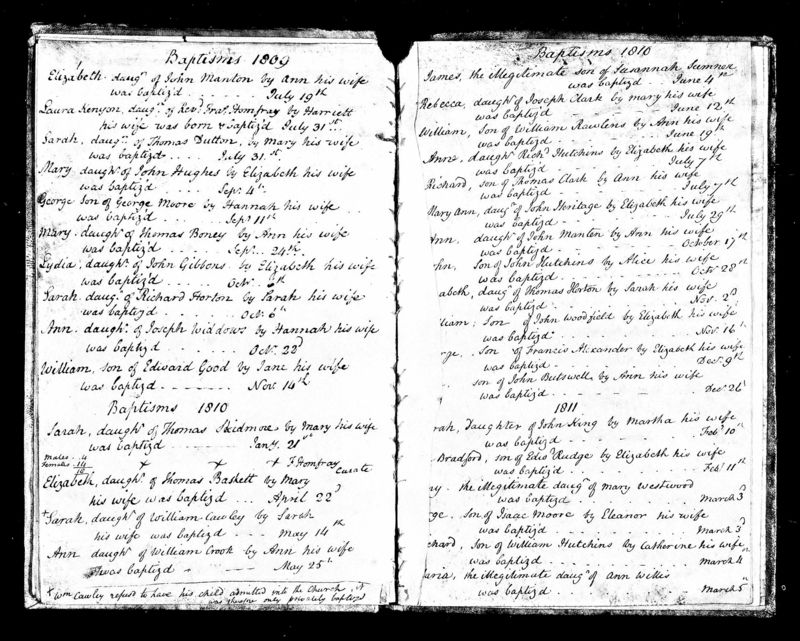 Baptisms 1809
Elizabeth daugr. of John Manton by Ann his wife
was baptiz'd . . . . . . July 19th
Laura Kenyon, daugr. of Revd. Fras. Homfray by Harriett
his wife was born & baptiz'd July 31st.
Sarah, daugr. of Thomas Dutton, by Mary his wife
was baptizd . . . . July 31.st
Mary daughr. of John Hughes by Elizabeth his wife
was baptiz'd . . . . Sepr. 4th.
George Son of George Moore by Hannah his wife
was baptiz'd . . . . . Sepr. 11th
Mary. daughr. of Thomas Boney by Ann his wife
was baptiz'd . . . . . . Sepr. 24th.
Lydia, daughr. of John Gibbons by Elizabeth his wife
was baptiz'd . . . . . . Octr. 6th
Sarah. daugr. of Richard Horton by Sarah his wife
was baptiz'd . . . . . . Oct. 6th
Ann. daughr. of Joseph Widdows by Hannah his wife
was baptiz'd . . . . . . . Octr. 22d
William, son of Edward Good by Jane his wife
was baptiz'd - - - - - - Novr. 14th
Baptisms 1810
Sarah, daughr. of Thomas Skidmore by Mary his wife
was baptiz'd - - - - - - Jany. 21st
males 4
Females 14
18
+ + + F Homfray
Curate
Elizabeth, daughr. of Thomas Baskett by Mary
his wife was baptiz'd . . . April 22d
+Sarah, daughr. of William Cawley by Sarah
his wife was baptiz'd - - - May 14th
Ann daughr. of William Crook by Ann his wife
was baptiz'd - - - - - May 25th
+ Wm Cawley refus'd to have his child admitted into the Church, it
was therefore only privately baptiz'd
Baptisms 1810
James, the Illegitimate son of Susannah Sumner
was baptiz'd . . June 4th
Rebecca, daughr. of Joseph Clark by Mary his wife
was baptiz'd . . . . . . June 12th
William, Son of William Rawlins by Ann his wife
was baptiz'd . . . . . . June 19th
Anne, daughr. Richd. Hutchins by Elizabeth his wife
was baptiz'd . . . . . . July 7th
Richard, son of Thomas Clark by Ann his wife
was baptiz'd . . . . . . July 7th
Mary Ann, daugr. of John Heritage by Elizabeth his wife
was baptiz'd . . . . . . July 29th
Ann, daughr. of John Manton by Ann his wife
was baptiz'd . . . . . . October 17th
hn, Son of John Hutchins by Alice his wife
was baptiz'd . . . . . . Octr. 28th
abeth, daugr. of Thomas Horton by Sarah his wife
was baptiz'd . . . . . . Novr. 2d
liam, Son of John Woodfield by Elizabeth his wife
was baptiz'd . . . . . . Novr. 16th
rge, Son of Francis Alexander by Elizabeth his wife
was baptiz'd . . . . . . Decr. 9th
son of John Butswell by Ann his wife
was baptiz'd . . . . . . Decr. 26th
1811
rah, Daughter of John King by Martha his wife
was baptiz'd . . . . . . Feby. 10th
Bradford, son of Edwd. Rudge by Elizabeth his wife
was baptiz'd . . . . . . Feby. 11th
ry. the Illegitimate daugr. of Mary Westwood
was baptiz'd . . . . . . March 3d
rge, son of Isaac Moore by Eleanor his wife
was baptiz'd . . . . . . March 3d
chard, Son of William Hutchins by Catherine his wife
was baptiz'd . . . . . . March 4th
aria, the Illegitimate daugr. of Ann Willis
was baptiz'd . . . . . . March 5th